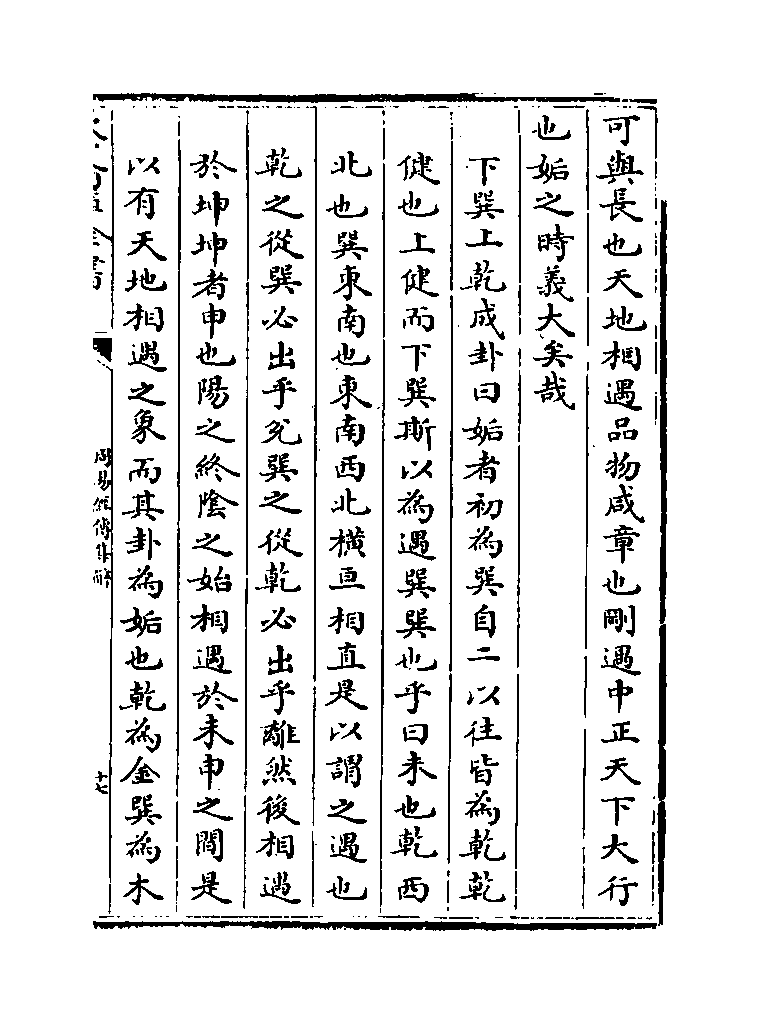 可與長也天地相遇品物咸章也剛遇中正天下大行
也姤之時義大矣哉
下巽上乾成卦曰姤者初為巽自二以往皆為乾乾
健也上健而下巽斯以為遇巽巽也乎曰未也乾西
北也巽東南也東南西北橫亘相直是以謂之遇也
乾之從巽必出乎兊巽之從乾必出乎離然後相遇
於坤坤者申也陽之終陰之始相遇於未申之間是
以有天地相遇之象而其卦為姤也乾為金巽為木
周易經傳集解
十七